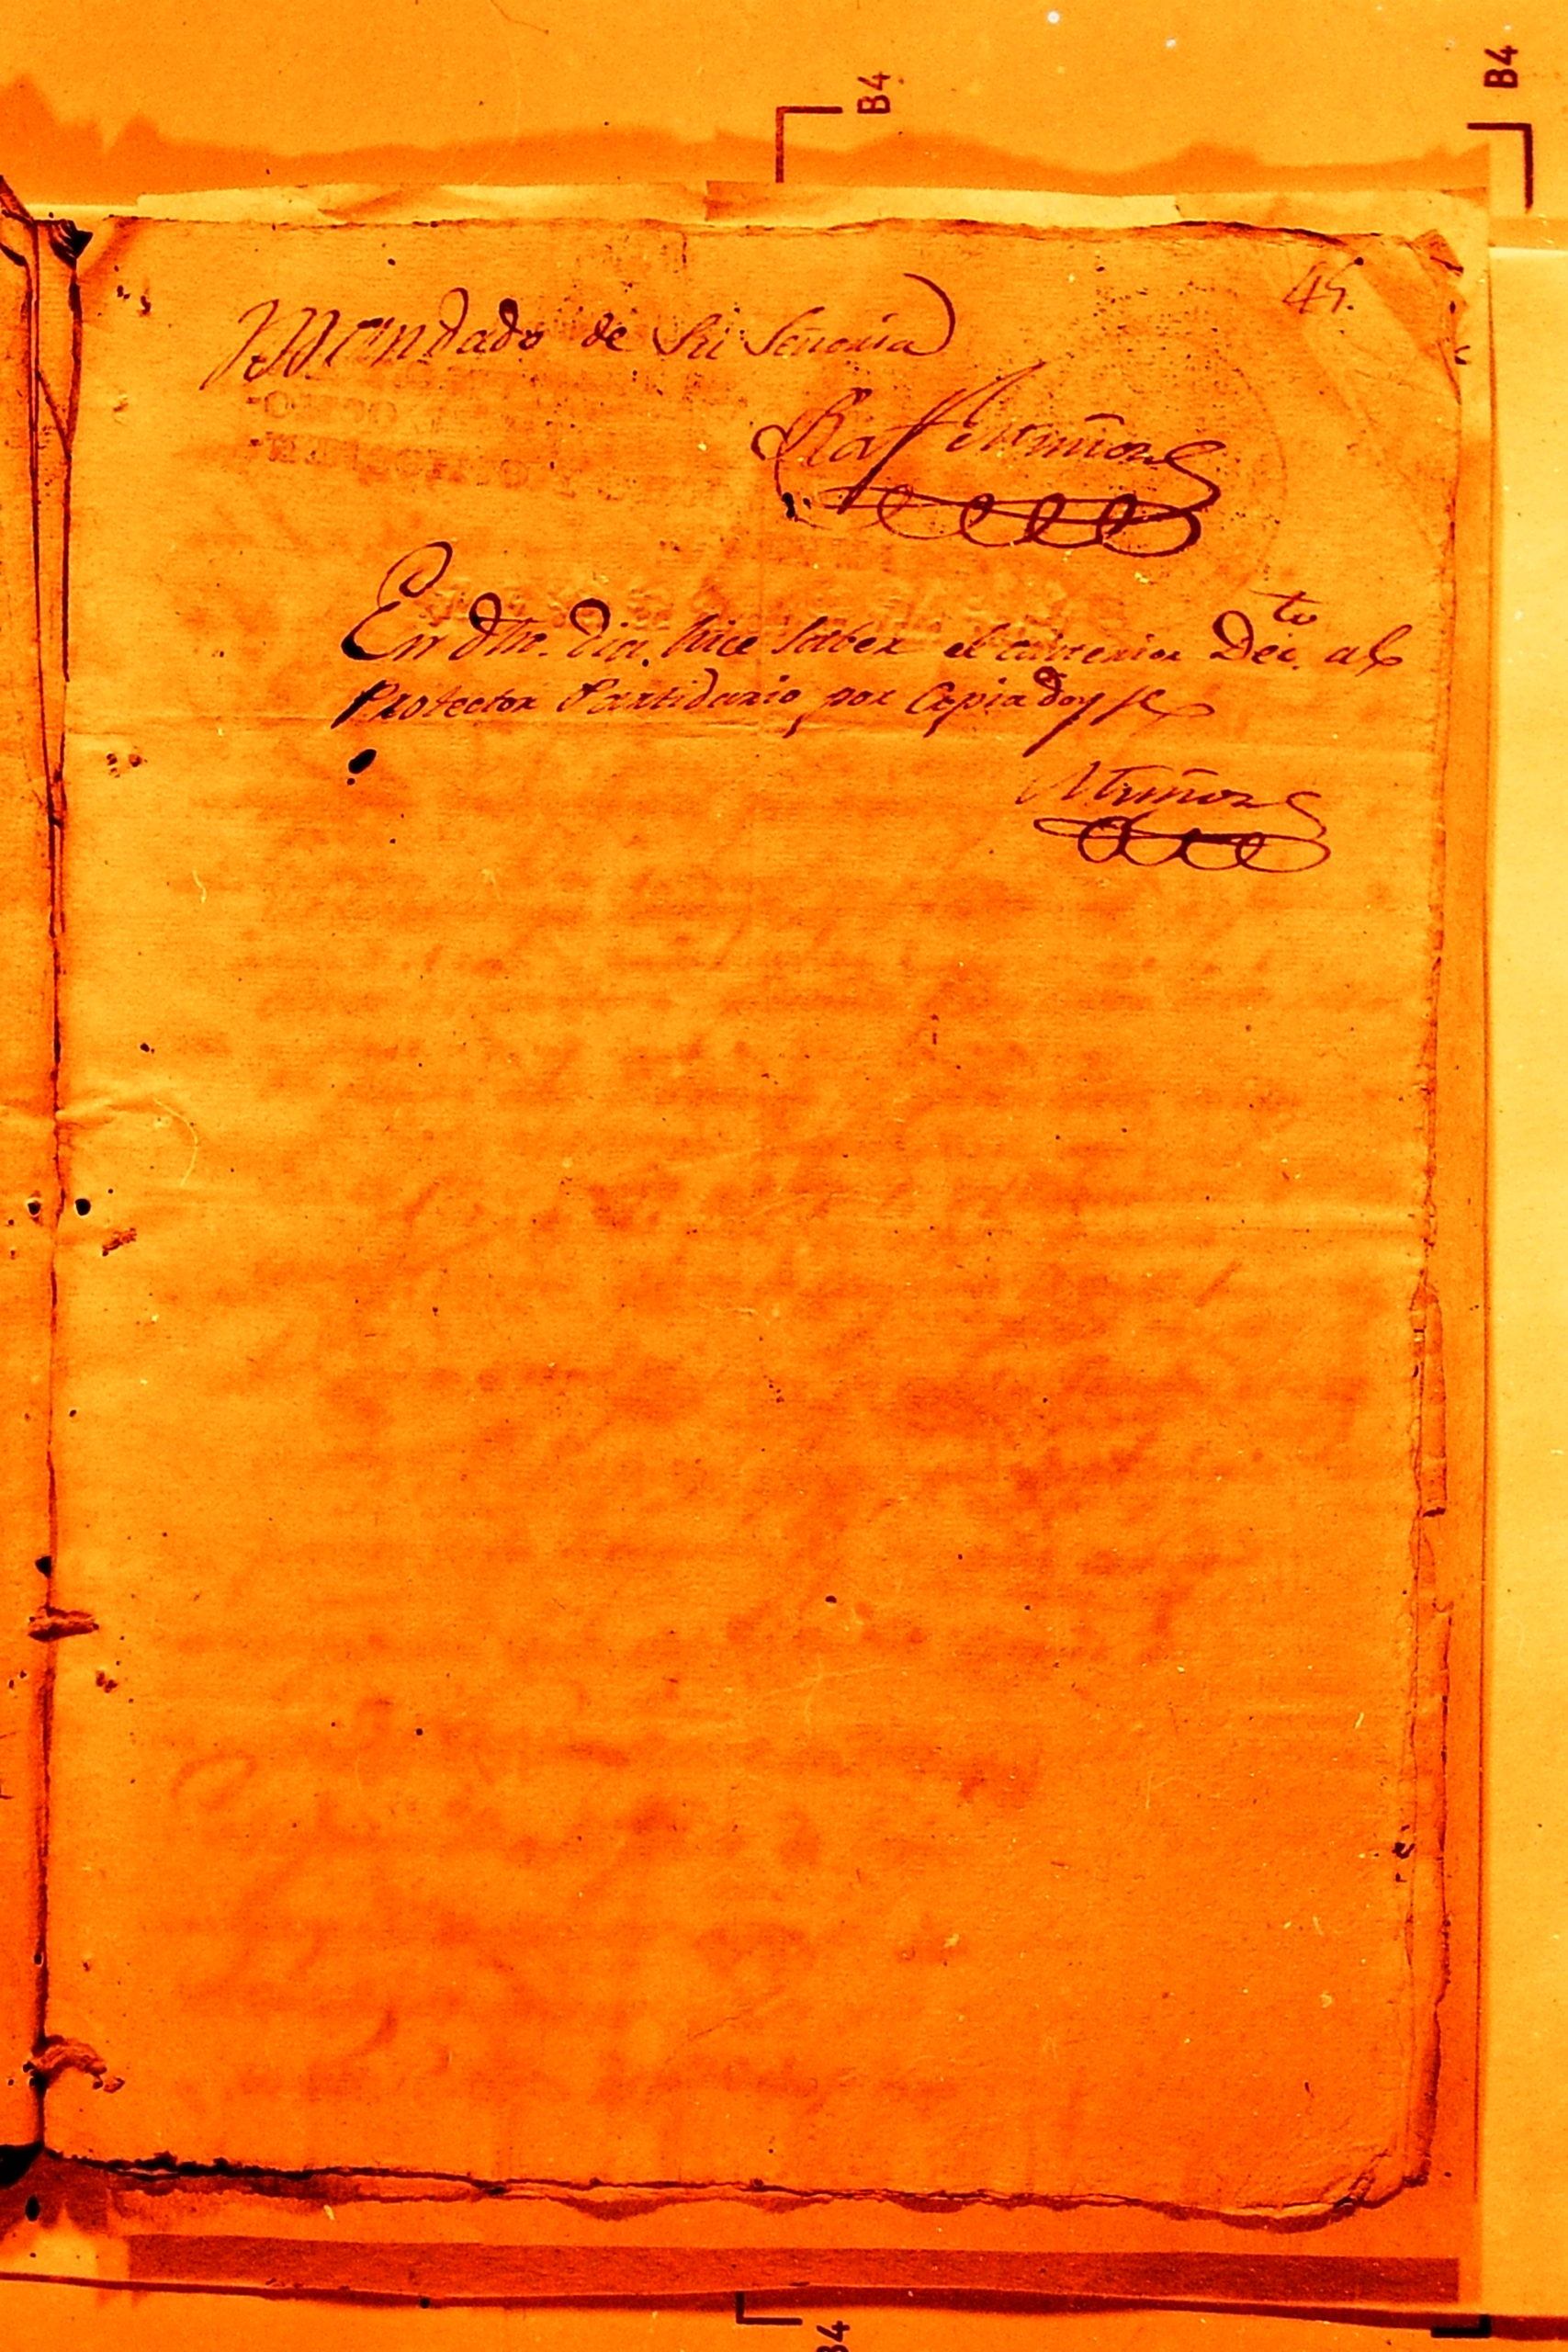 B4
B4
45.
Mandado de Su Señoria
Raf Muñoz
En dho. dia. hice saber el anterior Dec.to al
Protector Partidario por Copia doy fe
Muñoz
B4